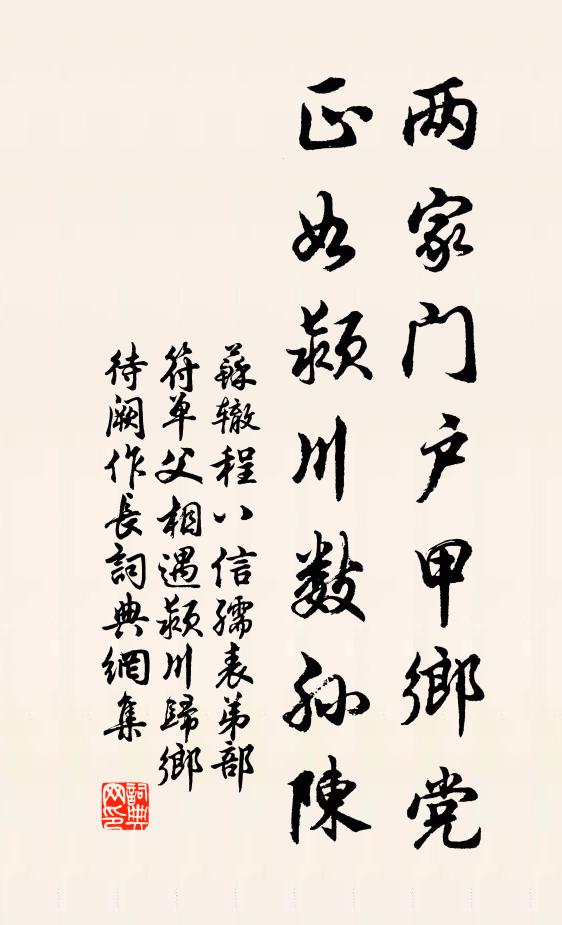 两家门户甲鄉党
正如颍川数孙陳
蘇辙程八信孺表弟部
符单父相遇颍川歸鄉
待阙作長詞典網集
詞典网印